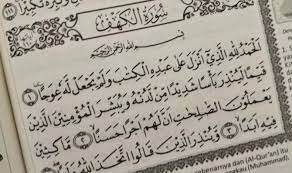 تَكْبِيْرًا
سُوْرَةُ الْكَهْفِ
بِسْمِ اللّٰهِ الرَّحْمٰنِ الرَّحِيْمِ
اَلْحَمْدُ لِلّٰهِ الَّذِيْٓ اَنْزَلَ عَلٰى عَبْدِهِ الْكِتٰبَ وَلَمْ يَجْعَلْ لَّهٗ عِوَجًا ۜ ١
قَيِّمًا لِّيُنْذِرَ بَأْسًا شَدِيْدًا مِّنْ لَّدُنْهُ وَيُبَشِّرَ الْمُؤْمِنِيْنَ الَّذِيْنَ
يَعْمَلُوْنَ الصّٰلِحٰتِ اَنَّ لَهُمْ اَجْرًا حَسَنًا ۙ ٢ مَّاكِثِيْنَ
فِيْهِ اَبَدًا ۙ ٣ وَّيُنْذِرَ الَّذِيْنَ قَالُوا اتَّخَذَ اللّٰهُ
sebenarnya dan (Al-Qur'an) itu
(Muhammad),